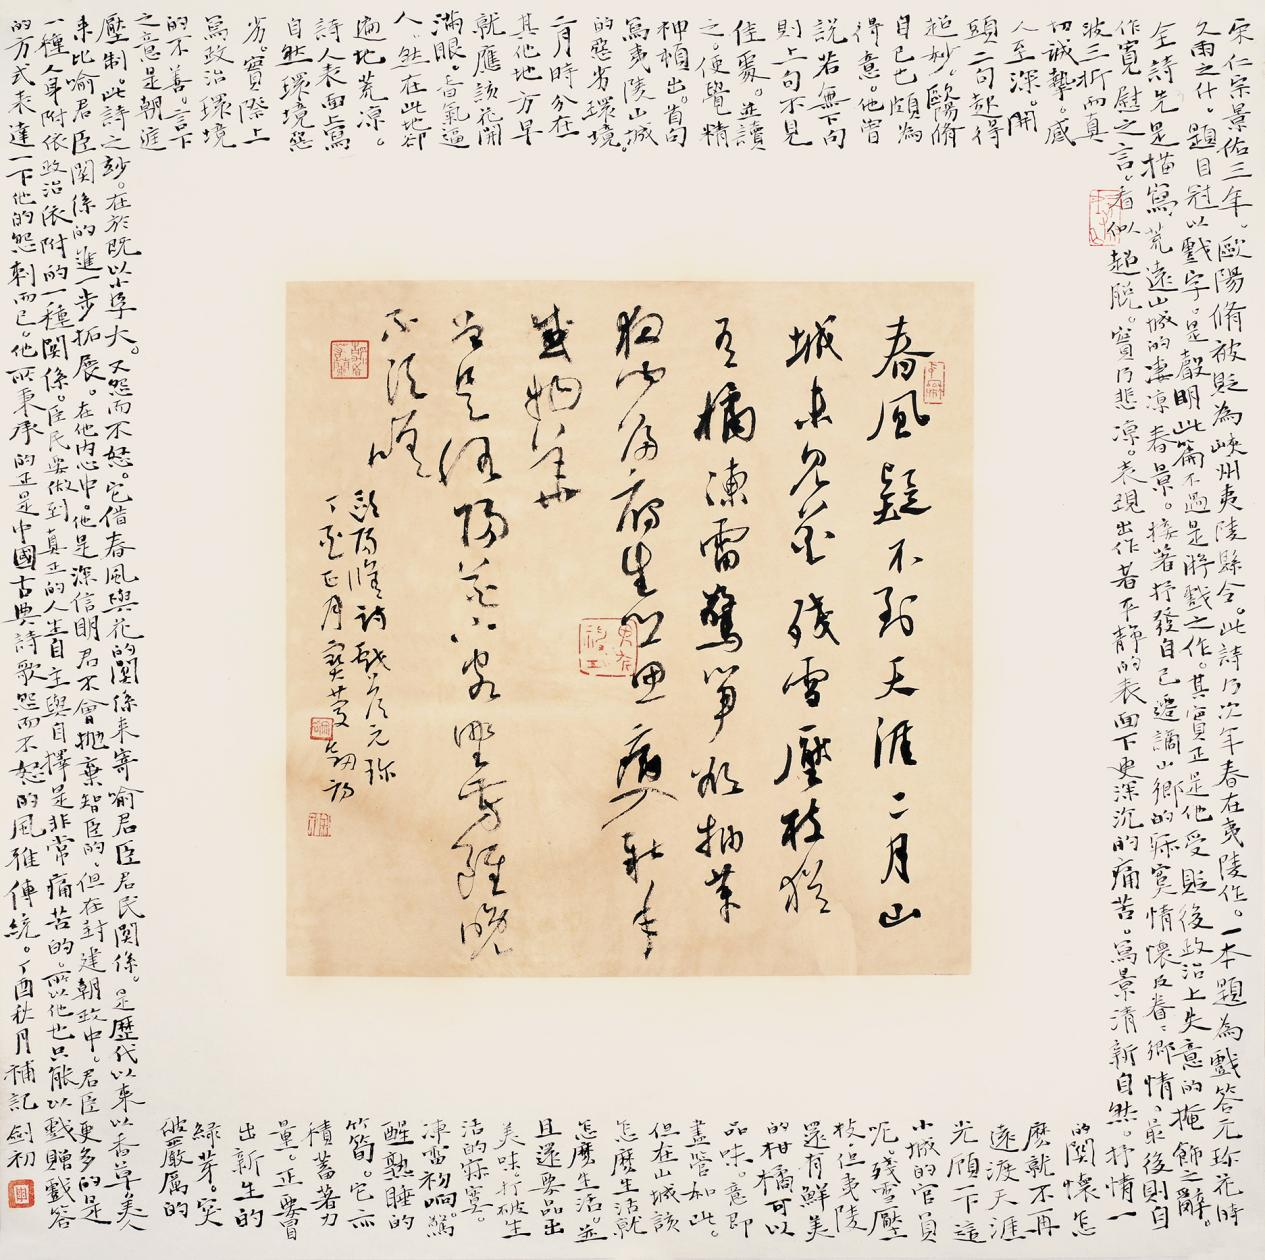 春風疑不到天涯二月山
城未見花殘雪壓枝猶
有橘凍雷驚筍欲抽芽
夜聞歸雁生鄉思病入新年
感物華
曾是洛陽花下客野芳雖晚
不須嗟
歐陽脩詩戲答元珍
丁酉正月寶慶劍初
宋仁宗景佑三年。歐陽脩被貶為峽州夷陵縣令。此詩乃次年春在夷陵作。一本題為戲答元珍花時
久雨之什。題目冠以戲字。是聲明此篇不過是游戲之作。其實正是他受貶後政治上失意的掩飾之辭。
全詩先是描寫荒遠山城的凄凉春景。接著抒發自己遷謫山鄉的寂寞情懷及眷眷鄉情、最後則自
作寬慰之言。看似超脫。實乃悲凉。表現出作者平靜的表面下更深沉的痛苦。寫景清新自然。抒情一
波三折而真
切誠摯。感
人至深。開
頭二句起得
超妙。歐陽脩
自己也頗為
得意。他嘗
說若無下句
則上句不見
佳處。並讀
之。便覺精
神頓出。首句
寫夷陵山城
的惡劣環境。
二月時分在
其他地方早
就應該花開
滿眼。香氣逼
人。然在此地卻
遍地荒凉。
詩人表面上寫
自然環境惡
劣。實際上
寫政治環境
的不善。言下
之意是朝廷
的關懷怎
麼就不再
遠渡天涯
光顧下這
小城的官員
呢。殘雪壓
枝。但夷陵
還有鮮美
的柑橘可以
品味。意即
盡管如此。
但在山城該
怎麼生活就
怎麼生活。並
且還要品出
美味。打破生
活的寂寞。
凍雷初响。驚
醒熟睡的
竹筍。它亦
積蓄著力
量。正要冒
出新生的
綠芽。突
破嚴厲的
壓制。此詩之妙。在於既以小孕大。又怨而不怒。它借春風與花的關係來寄喻君臣君民關係。是歷代以來以香草美人
來比喻君臣關係的進一步拓展。在他內心中。他是深信明君不會拋棄智臣的。但在封建朝政中。君臣更多的是
一種人身附依政治依附的一種關係。臣民要做到真正的人生自主與自擇是非常痛苦的。所以他也只能以戲贈戲答
的方式表達一下他的怨刺而已。他所秉承的正是中國古典詩歌怨而不怒的風雅傳統。丁酉秋月補記劍初